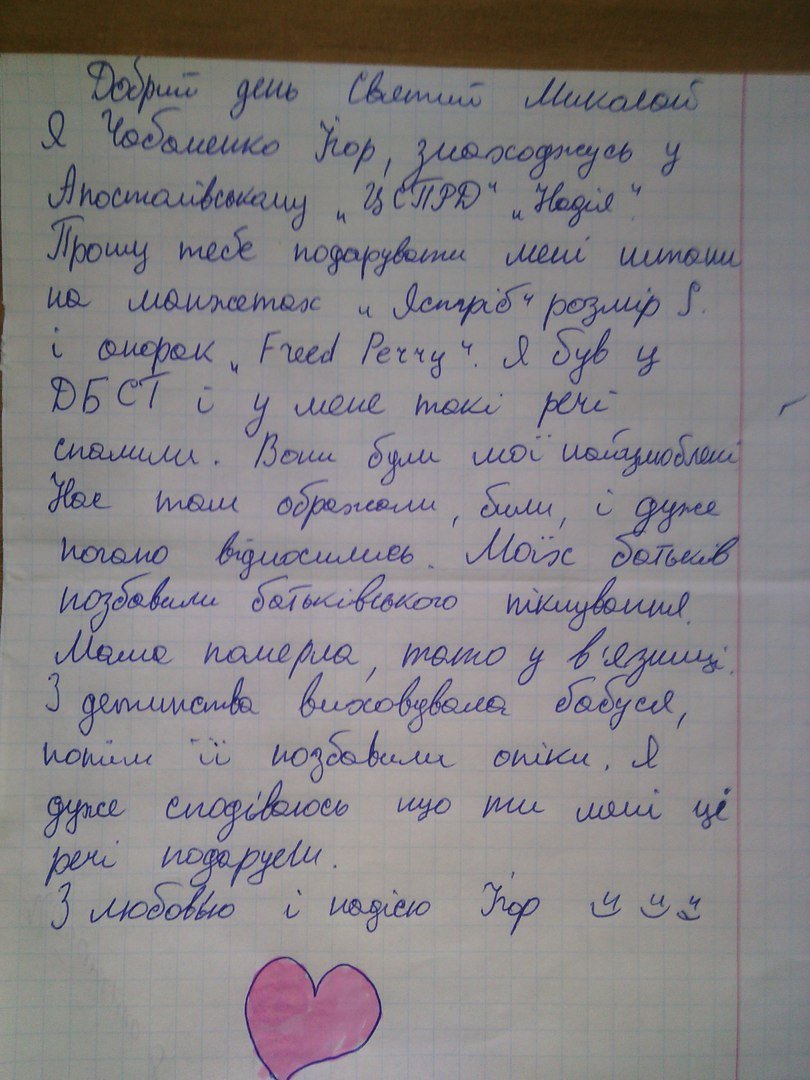 Добрий день Святий Миколай
Я Чабаненко Ігор, знаходжусь у
Апостолівському „ЦСПРД" „Надія".
Прошу тебе подарувати мені штани
на манжетах „Ястріб" розмір S.
і анорак „Freed Perry". Я був у
ДБСТ і у мене такі речі
спалили. Вони були мої найулюблені
Нас там ображали, били, і дуже
погано відносились. Моїх батьків
позбавили батьківського піклування.
Мама памерла, тато у в'язниці.
З детинства виховувала бабуся,
потім її позбавили опіки. Я
дуже сподіваюсь що ти мені ці
речі подаруєш.
З любовью і надією Ігор